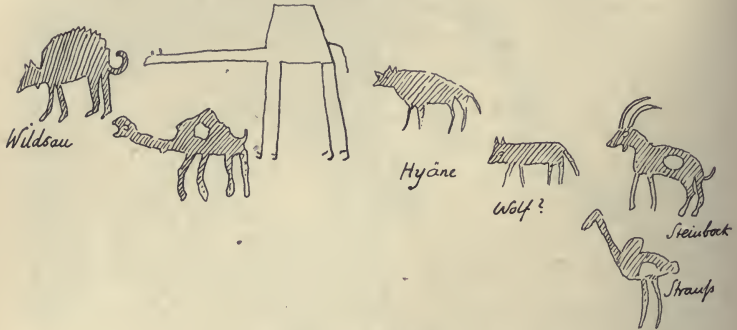 Wildsau
Hyäne
Wolf?
Steinbock
Strauß